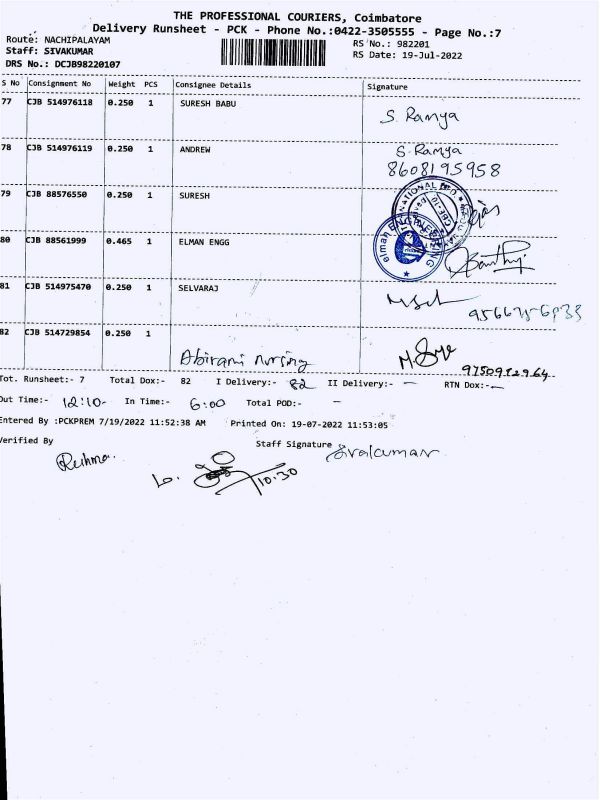 THE PROFESSIONAL COURIERS, Coimbatore
Delivery Runsheet - PCK - Phone No.:0422-3505555 - Page No.:7
Route: NACHIPALAYAM
RS No.: 982201
Staff: SIVAKUMAR
RS Date: 19-Jul-2022
DRS No.: DCJB98220107
S No Consignment No Weight PCS Consignee Details Signature
77 CJB 514976118 0.250 1 SURESH BABU S. Ramya
78 CJB 514976119 0.250 1 ANDREW S. Ramya
8608195958
79 CJB 88576550 0.250 1 SURESH
80 CJB 88561999 0.465 1 ELMAN ENGG
elman ENGINEERING
81 CJB 514975470 0.250 1 SELVARAJ
82 CJB 514729854 0.250 1
Abirami nursing
9750912964
Tot. Runsheet:- 7 Total Dox:- 82 I Delivery:- 82 II Delivery:- - RTN Dox:- -
Out Time:- 12:10- In Time:- 6:00 Total POD:- -
Entered By :PCKPREM 7/19/2022 11:52:38 AM Printed On: 19-07-2022 11:53:05
Verified By Staff Signature Sivakumar
10.30